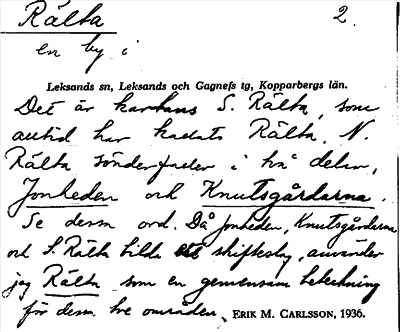 Rälta 2.
en by i
Leksands sn, Leksands och Gagnefs tg, Kopparbergs län.
Det är kartans S. Rälta, som
alltid har kallats Rälta. N.
Rälta sönderfaller i två delar,
Jonheden och Knutsgårdarna.
Se dessa ord. Då Jonheden, Knutsgårdarna
och S. Rälta bilda ett skifteslag, använder
jag Rälta som en gemensam beteckning
för dessa tre områden. ERIK M. CARLSSON, 1936.